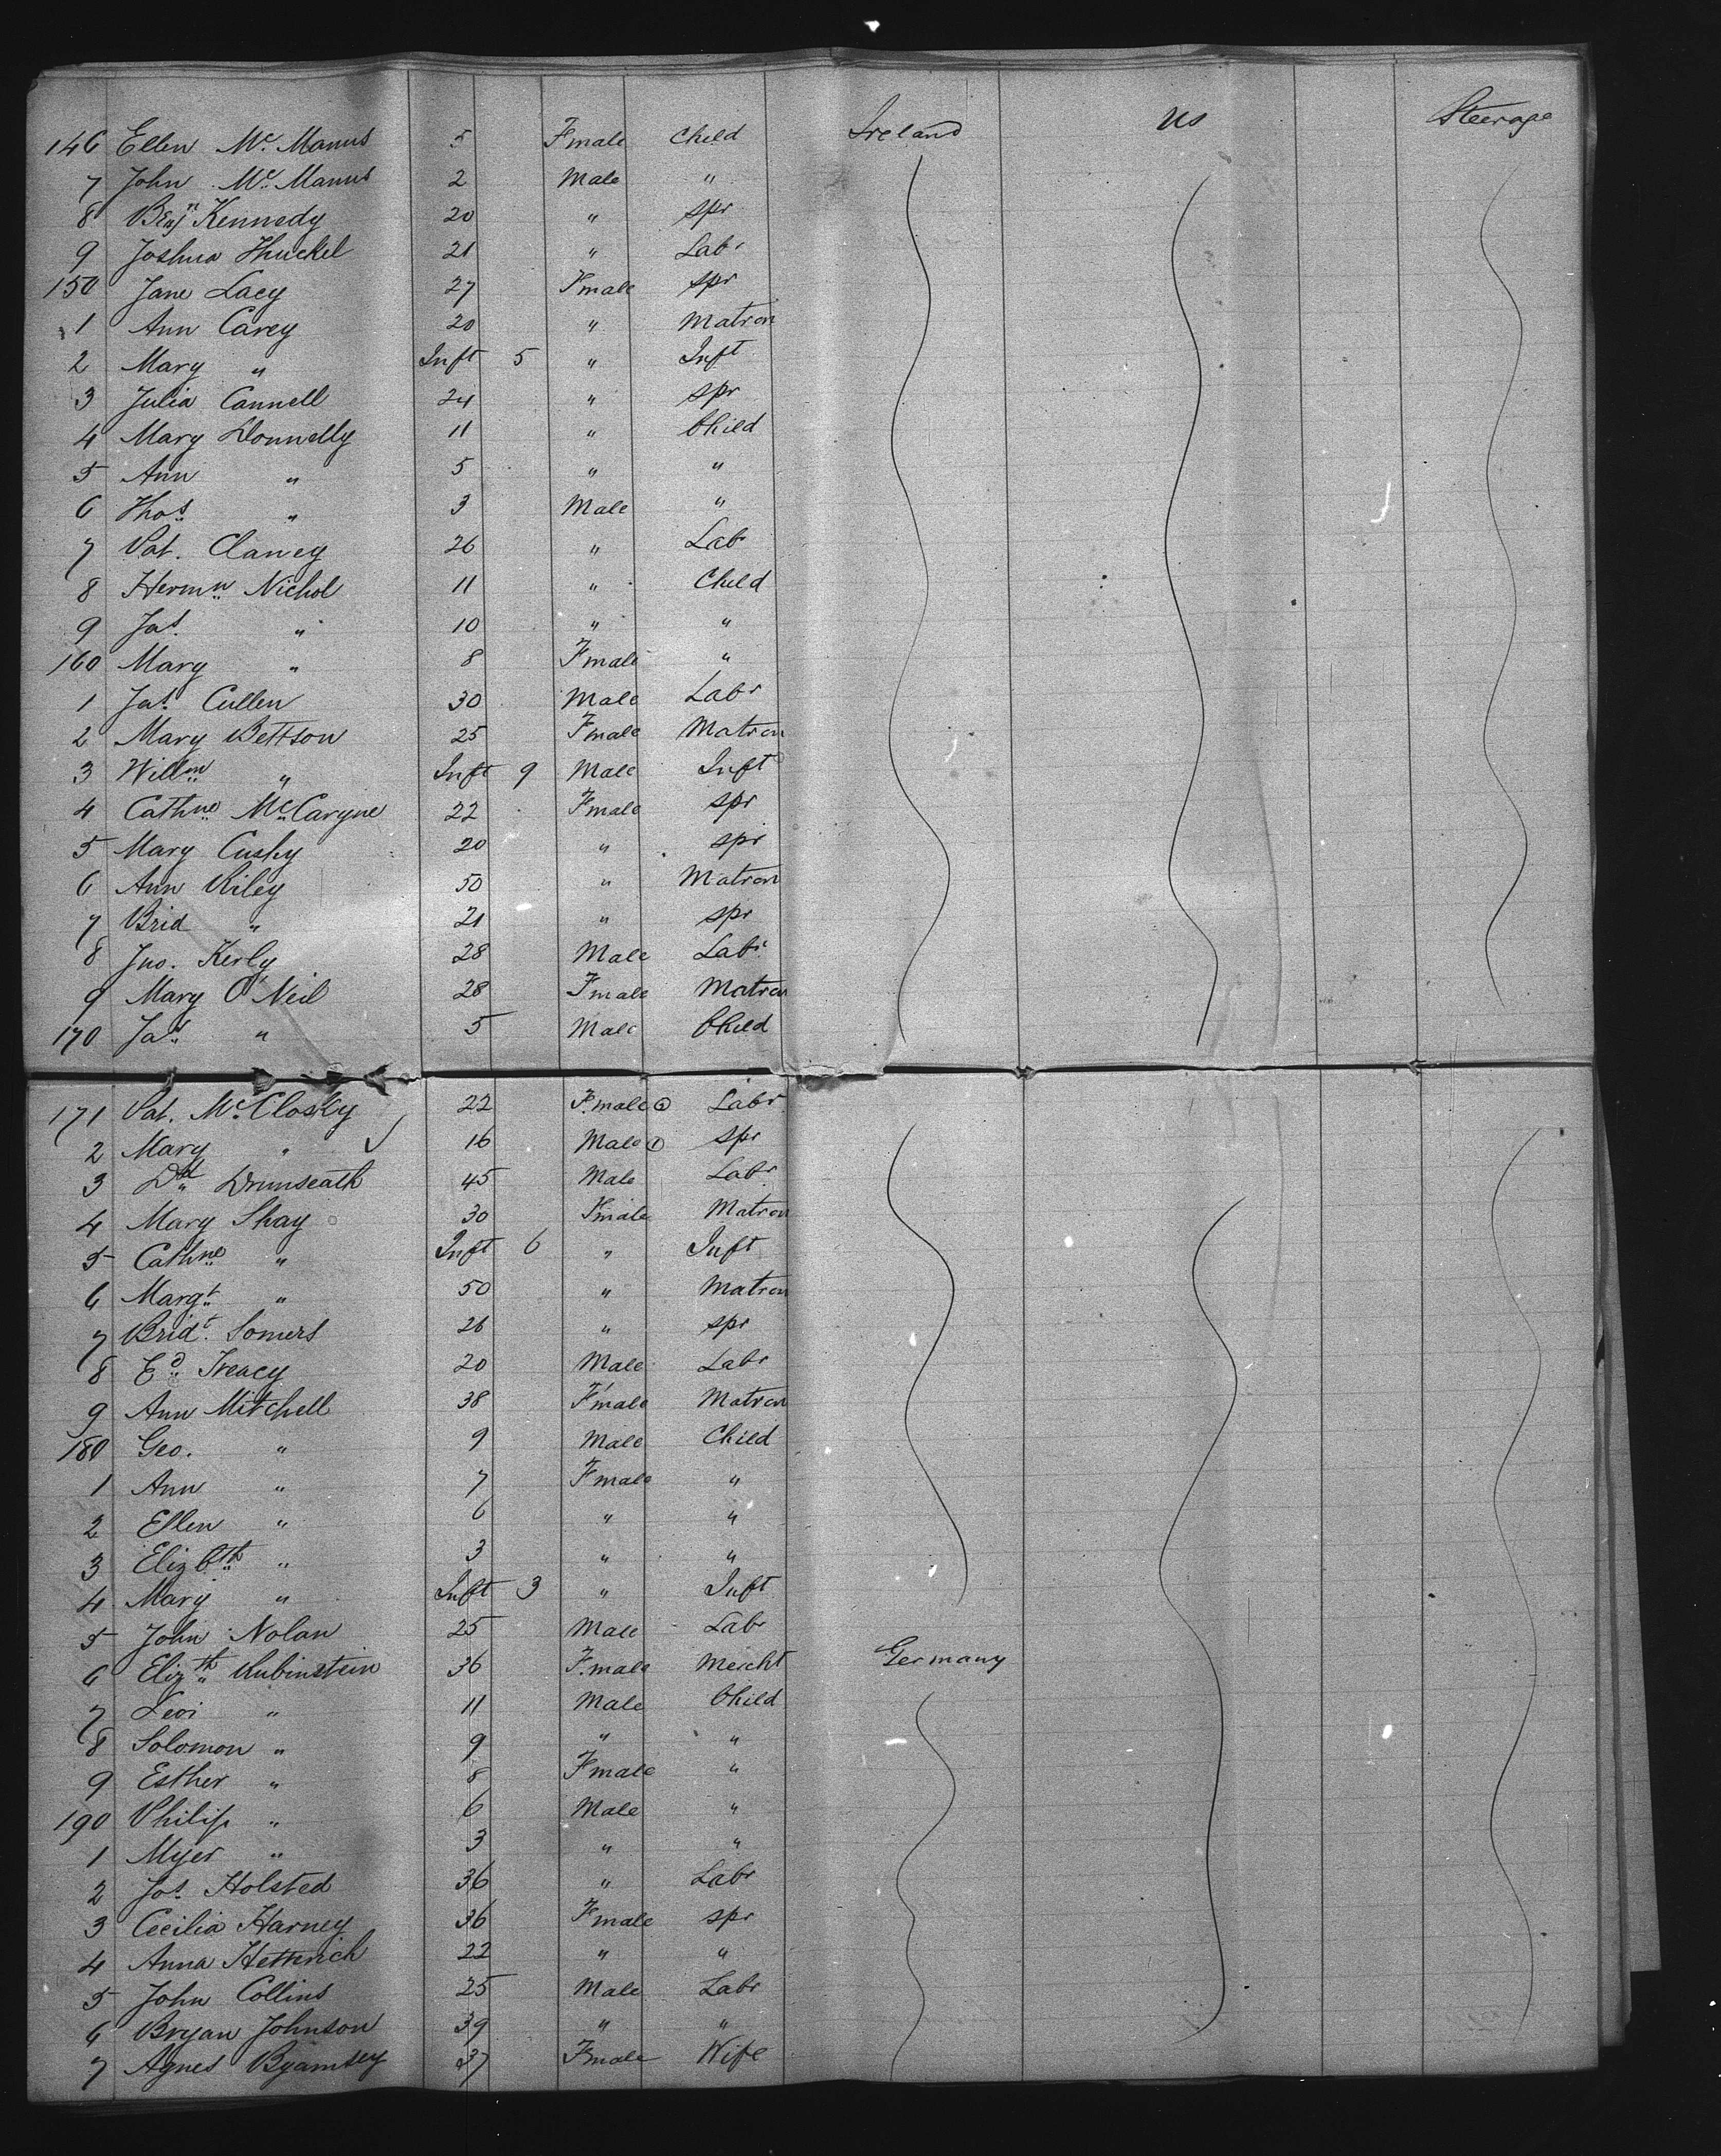 146 Ellen Mc Manus 5 Fmale Child Ireland US Steerage
7 John Mc Manus 2 Male "
8 Benjn Kennedy 20 " spr
9 Joshua Huckel 21 " Labr
150 Jane Lacy 27 Fmale spr
1 Ann Carey 20 " Matron
2 Mary " Inft 5 " Inft
3 Julia Cannell 24 " spr
4 Mary Donnelly 11 " Child
5 Ann " 5 " "
6 Thos " 3 Male "
7 Pat. Clancy 26 " Labr
8 Hermn Nichol 11 " Child
9 Jas " 10 " "
160 Mary " 8 Fmale "
1 Jas Cullen 30 Male Labr
2 Mary Bettson 25 Fmale Matron
3 Willm " Inft 9 Male Inft
4 Cathne McCaryne 22 Fmale spr
5 Mary Cushy 20 " spr
6 Ann Riley 50 " Matron
7 Brid " 21 " spr
8 Jno. Kerly 28 Male Labr
9 Mary O'Neil 28 Fmale Matron
170 Jas " 5 Male Child
171 Pat. McClosky 22 F.male Labr
2 Mary " 16 Male spr
3 Dd Drumseath 45 Male Labr
4 Mary Shay 30 Fmale Matron
5 Cathne " Inft 6 " Inft
6 Margt " 50 " Matron
7 Bridt Somers 26 " spr
8 Ed Treacy 20 Male Labr
9 Ann Mitchell 38 Fmale Matron
180 Geo. " 9 Male Child
1 Ann " 7 Fmale "
2 Ellen " 6 " "
3 Elizbth " 3 " "
4 Mary " Inft 3 " Inft
5 John Nolan 25 Male Labr
6 Elizth Rubinstein 36 F.male Mercht Germany
7 Levi " 11 Male Child
8 Solomon " 9 " "
9 Esther " 8 Fmale "
190 Philip " 6 Male "
1 Myer " 3 " "
2 Jos Holsted 36 " Labr
3 Cecilia Harney 36 Fmale spr
4 Anna Hetterich 22 " "
5 John Collins 25 Male Labr
6 Bryan Johnson 39 " "
7 Agnes 37 Fmale Wife